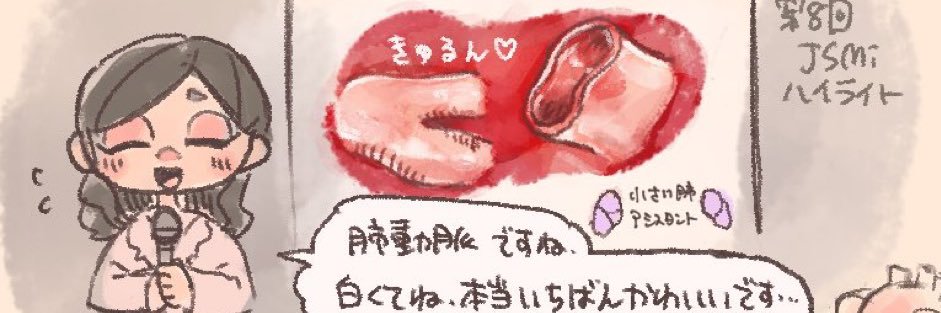 きゅるん♡
第8回
JSMi
ハイライト
小さい肺
アシスタント
肺動脈ですね、
白くてね、本当いちばんかわいいです…